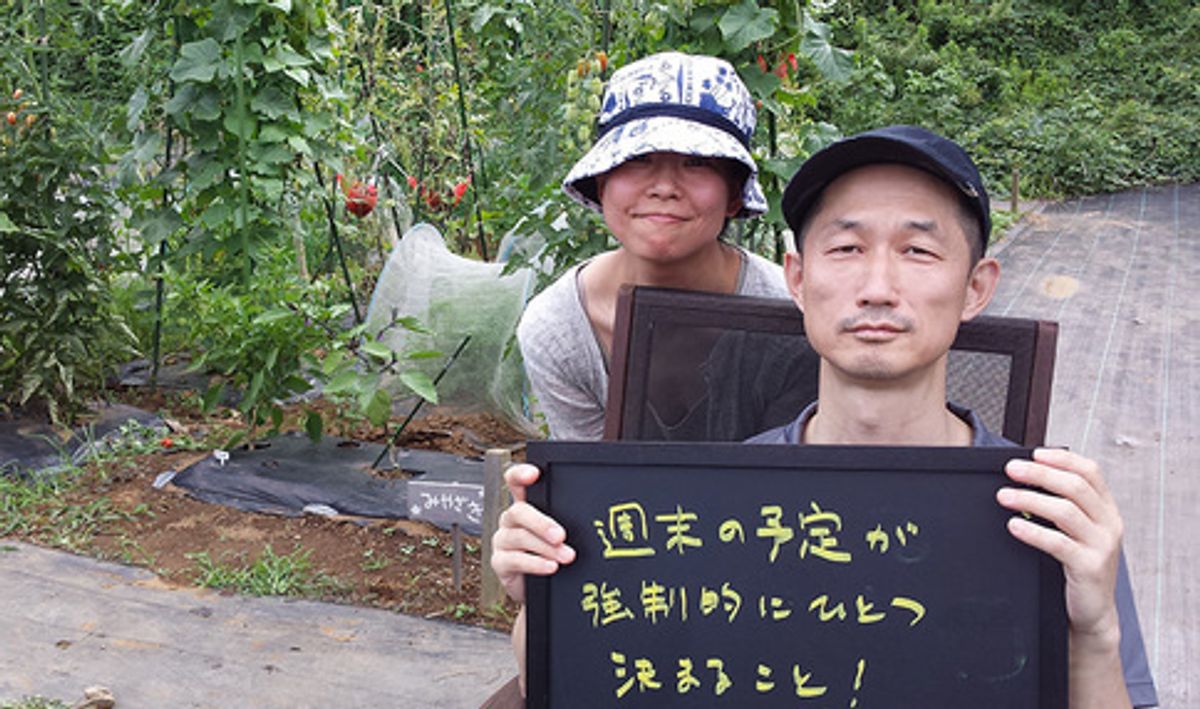 週末の予定が
強制的にひとつ
決まること!